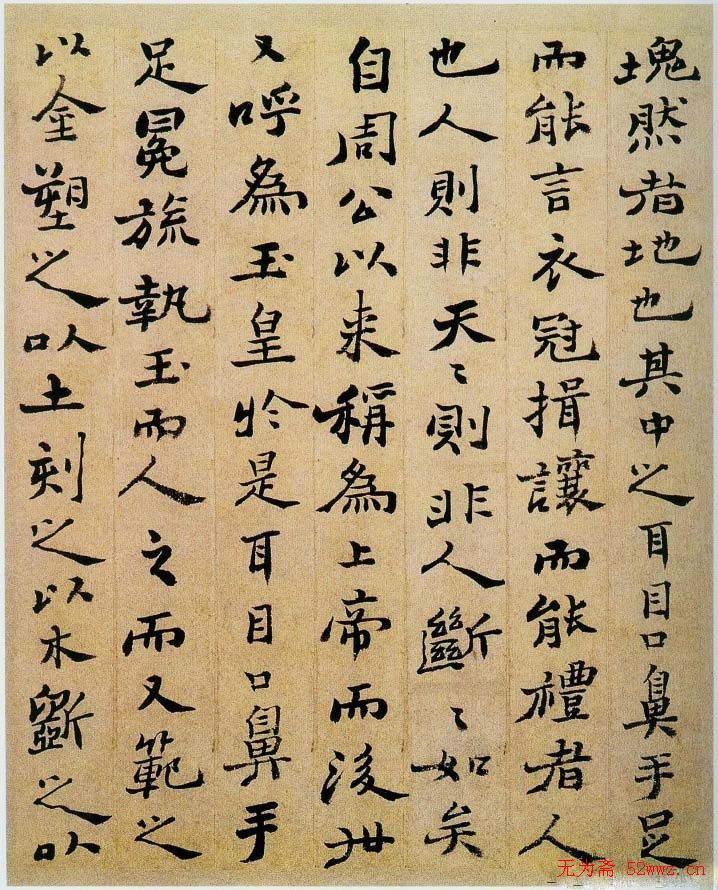 塊然者地也其中之耳目口鼻手足
而能言衣冠揖讓而能禮者人
也人則非天〻則非人斷〻如矣
自周公以来稱為上帝而後世
又呼為玉皇於是耳目口鼻手
足冕旒執玉而人之而又範之
以金塑之以土刻之以木斲之以
无为斋 52wwz.cn